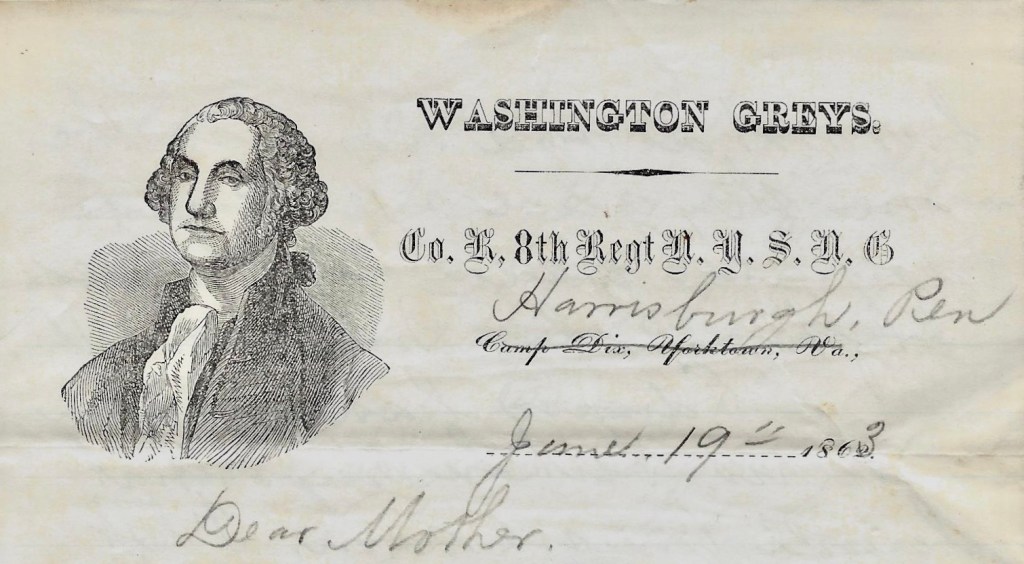 WASHINGTON GREYS.
Co. K, 8th Regt N. Y. S. N. G
Harrisburgh, Pen
Camp Dix, Yorktown, Va.,
June 19" 1863
Dear Mother.